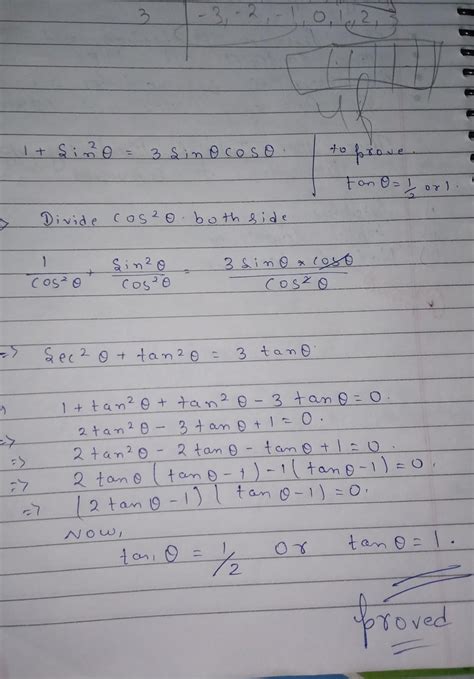 3 | -3, -2, -1, 0, 1, 2, 3
1 + Sin²θ = 3 Sinθ cosθ. | to prove.
tanθ = 1/2 or 1.
Divide Cos²θ. both side
1/Cos²θ + Sin²θ/Cos²θ = 3 Sinθ × cosθ/Cos²θ
=> Sec²θ + tan²θ = 3 tanθ.
1 + tan²θ + tan²θ - 3 tanθ = 0.
=> 2tan²θ - 3 tanθ + 1 = 0.
=> 2tan²θ - 2tanθ - tanθ + 1 = 0.
=> 2 tanθ (tanθ - 1) - 1(tanθ - 1) = 0.
=> (2 tanθ - 1) (tanθ - 1) = 0.
NOW,
tanθ = 1/2 or tanθ = 1.
proved